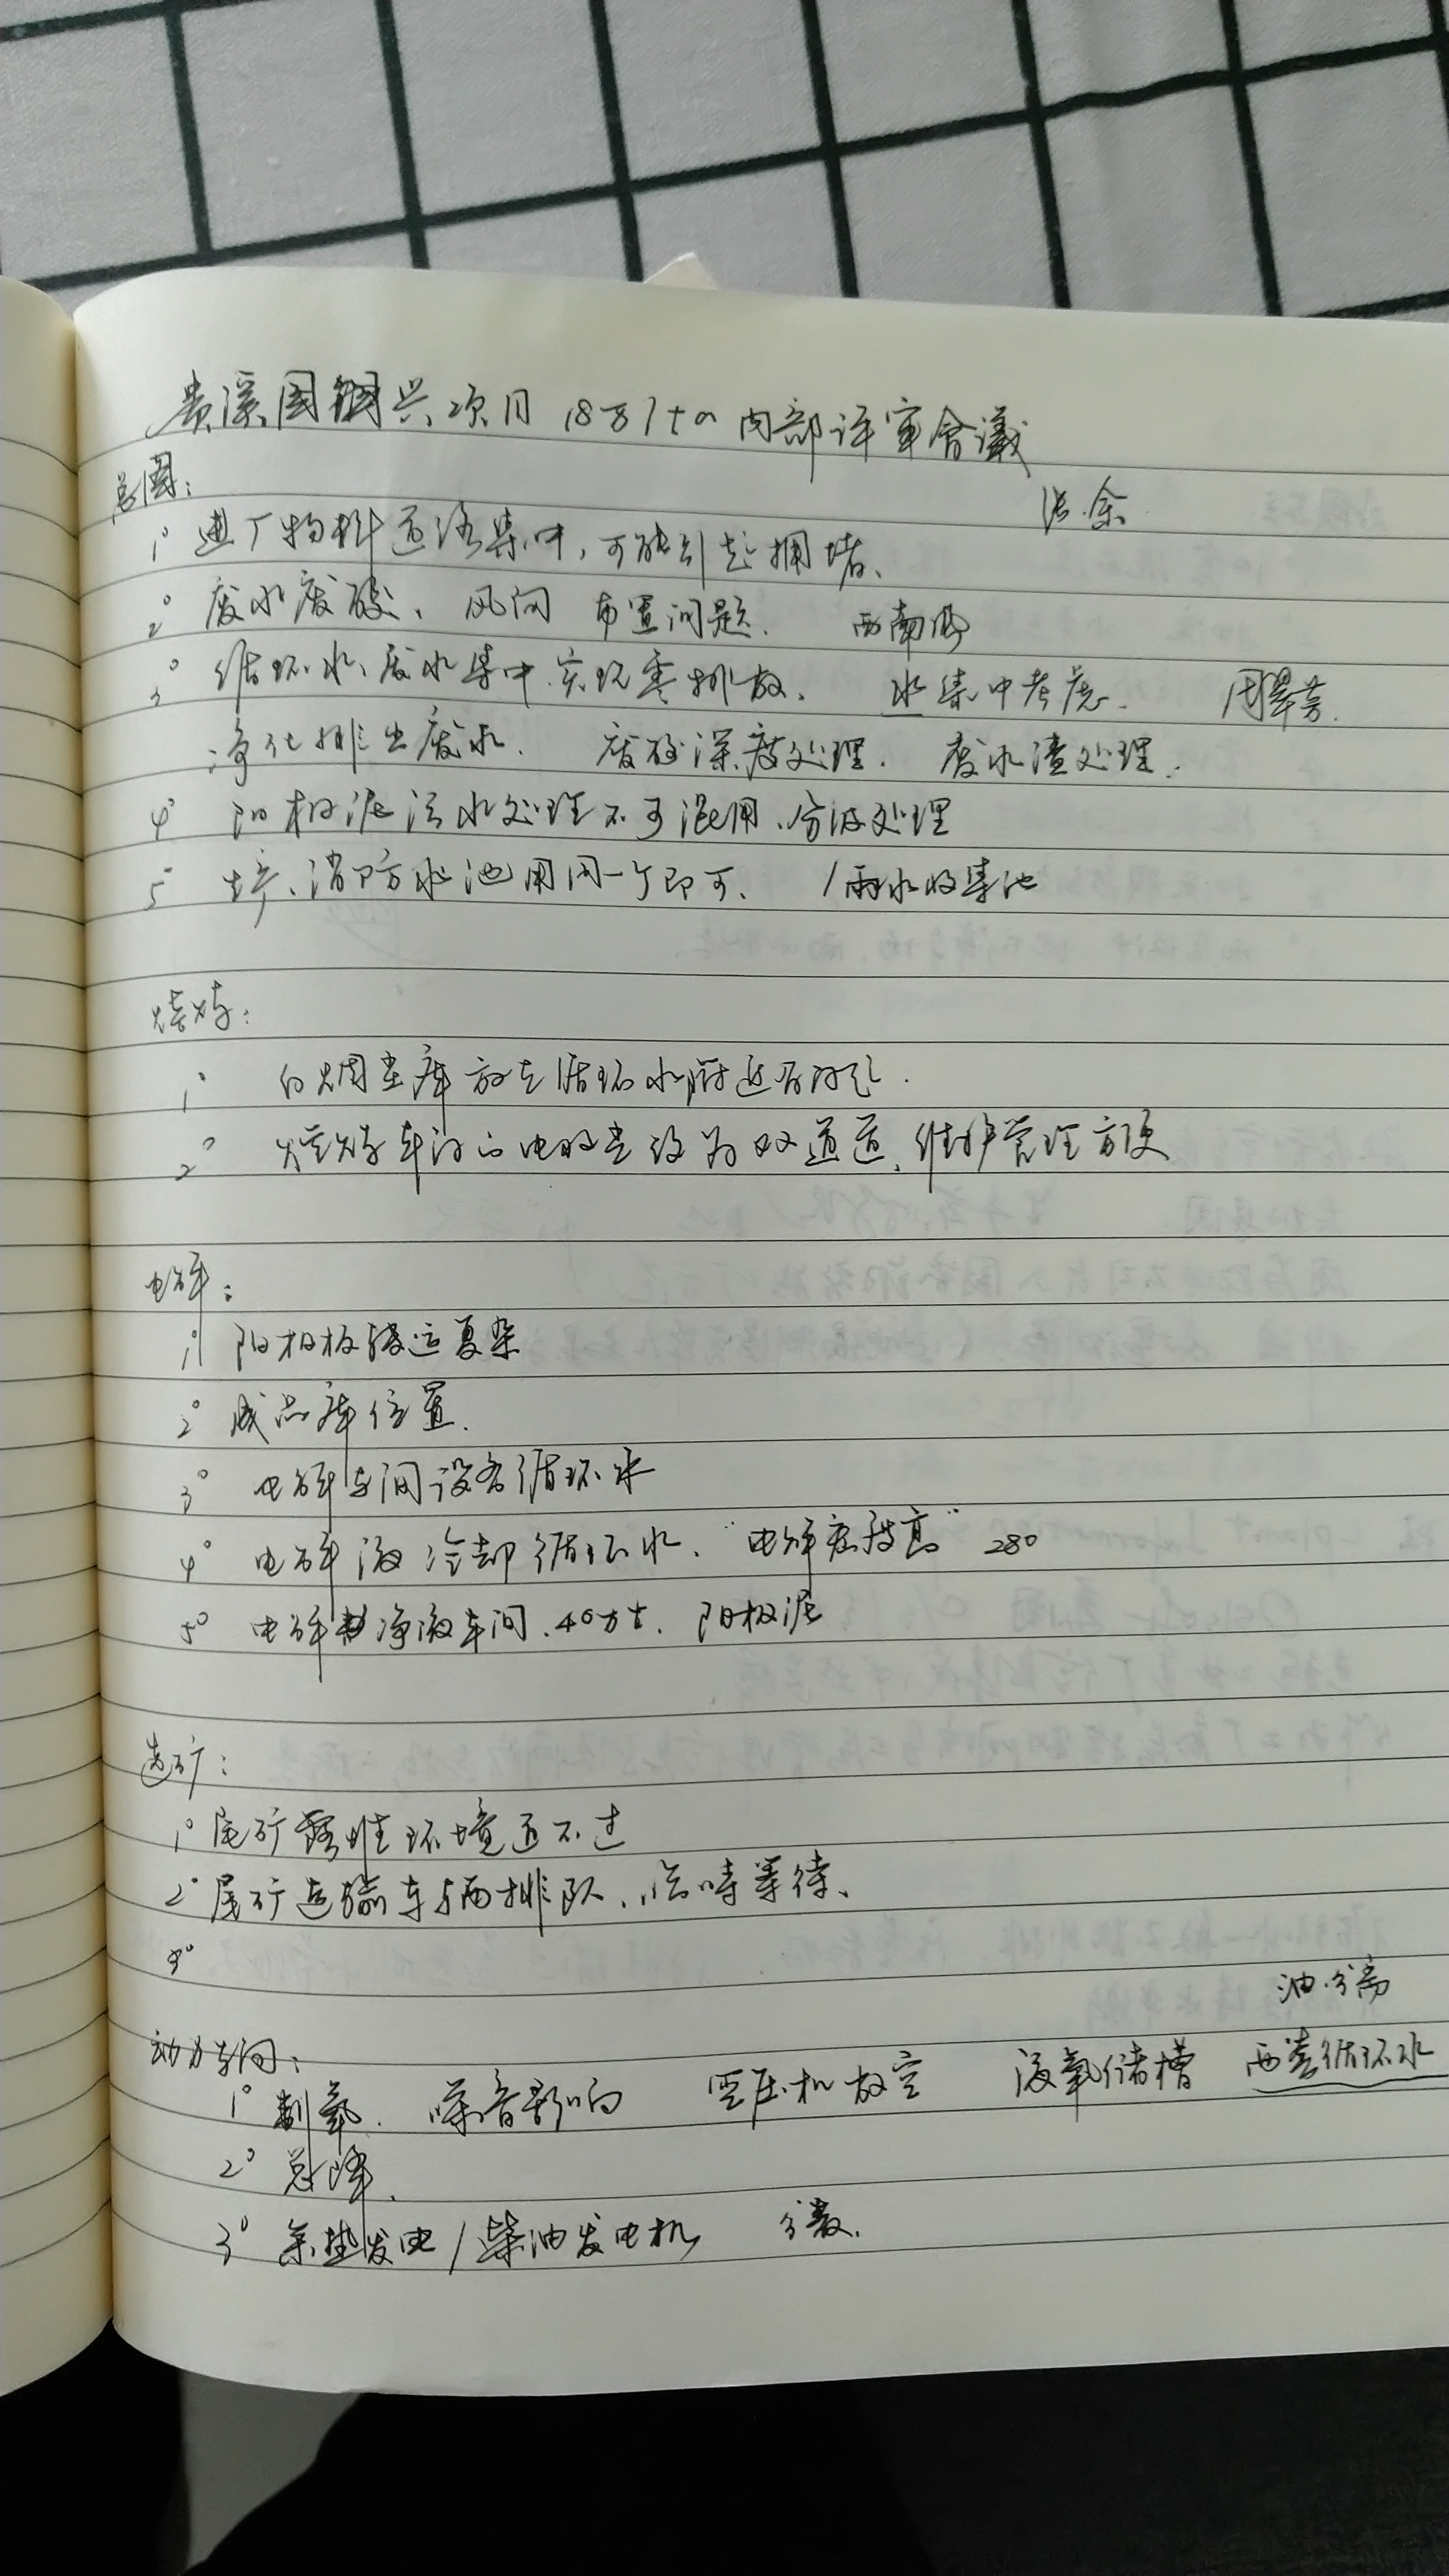 贵溪国兴项目 18万t/a 内部评审会議
总圖：
张.余
1° 进厂物料道路集中，可能引起拥堵、
2° 废水废酸、风向 布置问题. 西南风
3° 循环水、废水集中.实现零排放. 水集中考虑. 周翠芳.
净化排出废水. 废酸深度处理. 废水渣处理.
4° 阳极泥污水处理不可混用、分流处理
5° 生产、消防水池用同一个即可、 /雨水收集池
熔炼：
1° 白烟尘库放在循环水附近
2° 熔炼车间的电收尘设为双通道、维护管理方便
电解：
1° 阳极板转运复杂
2° 成品库位置.
3° 电解车间设备循环水
4° 电解液冷却循环水、"电解密度高" 280
5° 电解净液车间.40万t. 阳极泥
选矿：
1° 尾矿 环境通不过
2° 尾矿运输车辆排队、临时等待、
3°
油分离
动力车间：
1° 制氧. 噪音影响 空压机放空 液氧储槽 两套循环水
2° 总降.
3° 余热发电/柴油发电机 分散.